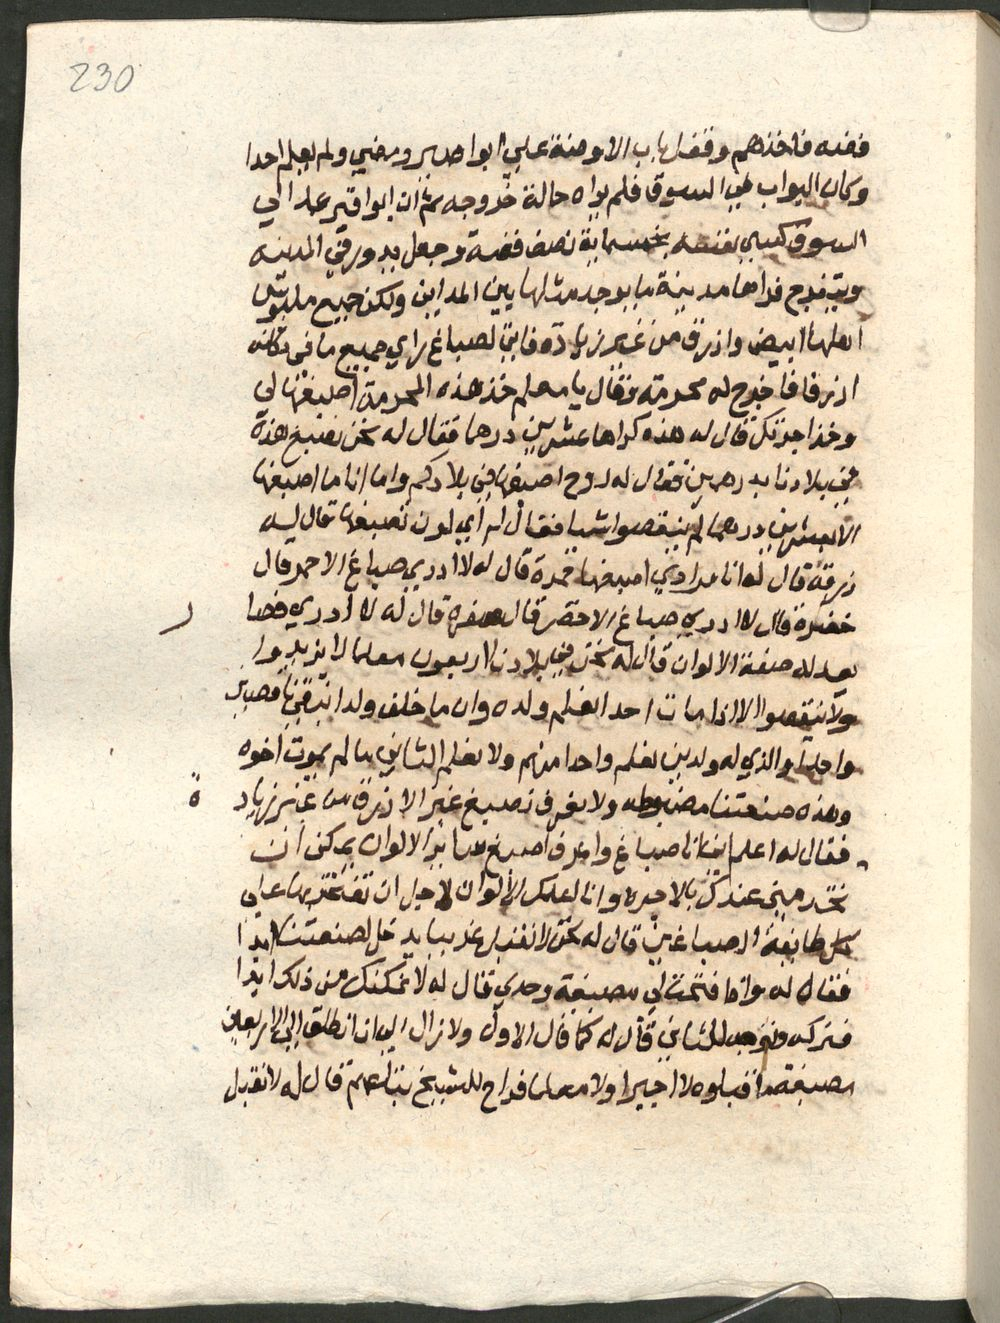 230
فضه فاخذهم وقفل باب الاوضة علي ابوا صير ومضي ولم يعلم احدا
وكان البواب في السوق فلم يراه حالة خروجه ثم ان ابوا قير عمد الي
السوق كسي بفسه بخمسماية نصف فضة وجعل يدور في المدينه
ويتفرج فراها مدينة ما يوجد مثلها بين المداين ولكن جميع ملبوس
اهلها ابيض وازرق من غير زيادة فاتي لصباغ راي جميع ما في دكانه
ازرقا فاخرج له محرمة وقال يا معلم خذ هذه المحرمة اصبغها لي
وخذ اجرتك قال له هذه كراها عشرين درهما فقال له نحن نصبغ هذة
في بلادنا بدرهمين فقال له روح اصبغها في بلادكم واما انا ما اصبغها
الا بعشرين درهما لم ينقصوا شيا فقال له أي لون تصبغها قال ليه
زرقة قال له انا مرادي اصبغها حمرة قال له لا ادري صباغ الاحمر قال
خضرة قال لا ادري صباغ الاخضر قال صفره قال له لا ادري فصار
يعد له صفة الالوان قال له نحن في بلادنا اربعون معلما لا يزيدوا
ولا ينقصوا الا اذا مات احد انعلم ولده وان ما خلف ولدا نبقي ناقصين
واحدا والذي له ولدين نعلم واحدا منهم ولا نعلم الثاني ما لم يموت اخوه
وهذه صنعتنا مضبوطه ولا نعرف نصبغ غير الازرق من غير زيادة
فقال له اعلم اني انا صباغ واعرف اصبغ ساير الالوان يمكن أن
تخدمني عندك بالاجره وانا اعلمك الألوان لاجل ان تفتخر بها علي
كل طائفة الصباغين قال له نحن لا نقبل غريبا يدخل لصنعتنا ابدا
فقال له واذا فتحت لي مصبغة وحدي قال له لا يمكنك من ذلك ابدا
فتركه وتوجه للثاني قال له كما قال الاول ولا زال الي ان انطلق الي الاربعين
مصبغة ما قبلوه لا اجيرا ولا معلما فراح للشيخ بتاعهم قال له لا نقبل